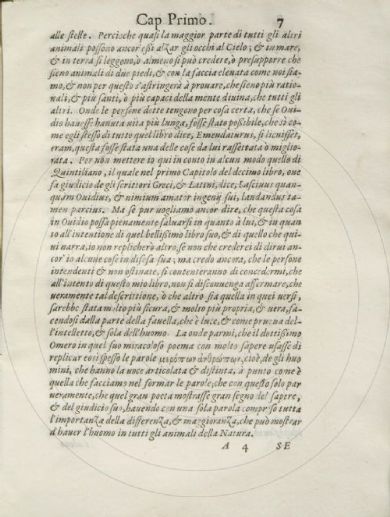 Cap Primo. 7
alle stelle. Percioche quasi la maggior parte di tutti gli altri
animali possono ancor essi alzar gli occhi al Cielo; & in mare,
& in terra si leggono, ò almeno si può credere, ò presupporre che
sieno animali di due piedi, & con la faccia eleuata come noi sia-
mo, & non per questo s'astringerà à prouare, che sieno più ratio-
nali, & più santi, ò più capaci della mente diuina, che tutti gli
altri. Onde le persone dotte tengono per cosa certa, che se Oui-
dio hauesse hauuta uita più lunga, fosse stato possibile, che sì co-
me egli stesso di tutto quel libro dice, Emendaturus, si licuisset,
eram, questa fosse stata una delle cose da lui rassettata ò miglio-
rata. Per non mettere io qui in conto in alcun modo quello di
Quintiliano, il quale nel primo Capitolo del decimo libro, oue
fa giudicio de gli scrittori Greci, & Latini, dice, Lasciuus quan-
quam Ouidius, & nimium amator ingenij sui, laudandus ta-
men parcius. Ma se pur vogliamo ancor dire, che questa cosa
in Ouidio possa pienamente saluarsi in quanto à lui, & in quan-
to all'intentione di quel bellissimo libro suo, & di quello che qui-
ui narra, io non replicherò altro, se non che crederei di dirui an-
cor' io alcune cose in difesa sua; ma credo ancora, che le persone
intendenti & non ostinate, si contenteranno di concedermi, che
all'intento di questo mio libro, non si disconuenga affermare, che
veramente tal descrittione, ò che altro sia quella in quei uersi,
sarebbe stata molto più sicura, & molto più propria, & uera, fa-
cendosi dalla parte della fauella, che è luce, & come pruoua del-
l'intelletto, & sola dell'huomo. La onde parmi, che il dottissimo
Omero in quel suo miracoloso poema con molto sapere usasse di
replicar così spesso le parole μερόπων ἀνθρώπων, cioè, de gli huo
mini, che hanno la uoce articolata & distinta, à punto come è
quella che facciamo nel formar le parole, che con questo solo par
veramente, che quel gran poeta mostrasse gran segno del sapere,
& del giudicio suo, hauendo con una sola parola compreso tutta
l'importanza della differenza, & maggioranza, che può mostrar
d'hauer l'huomo in tutti gli animali della Natura.
A 4 SE